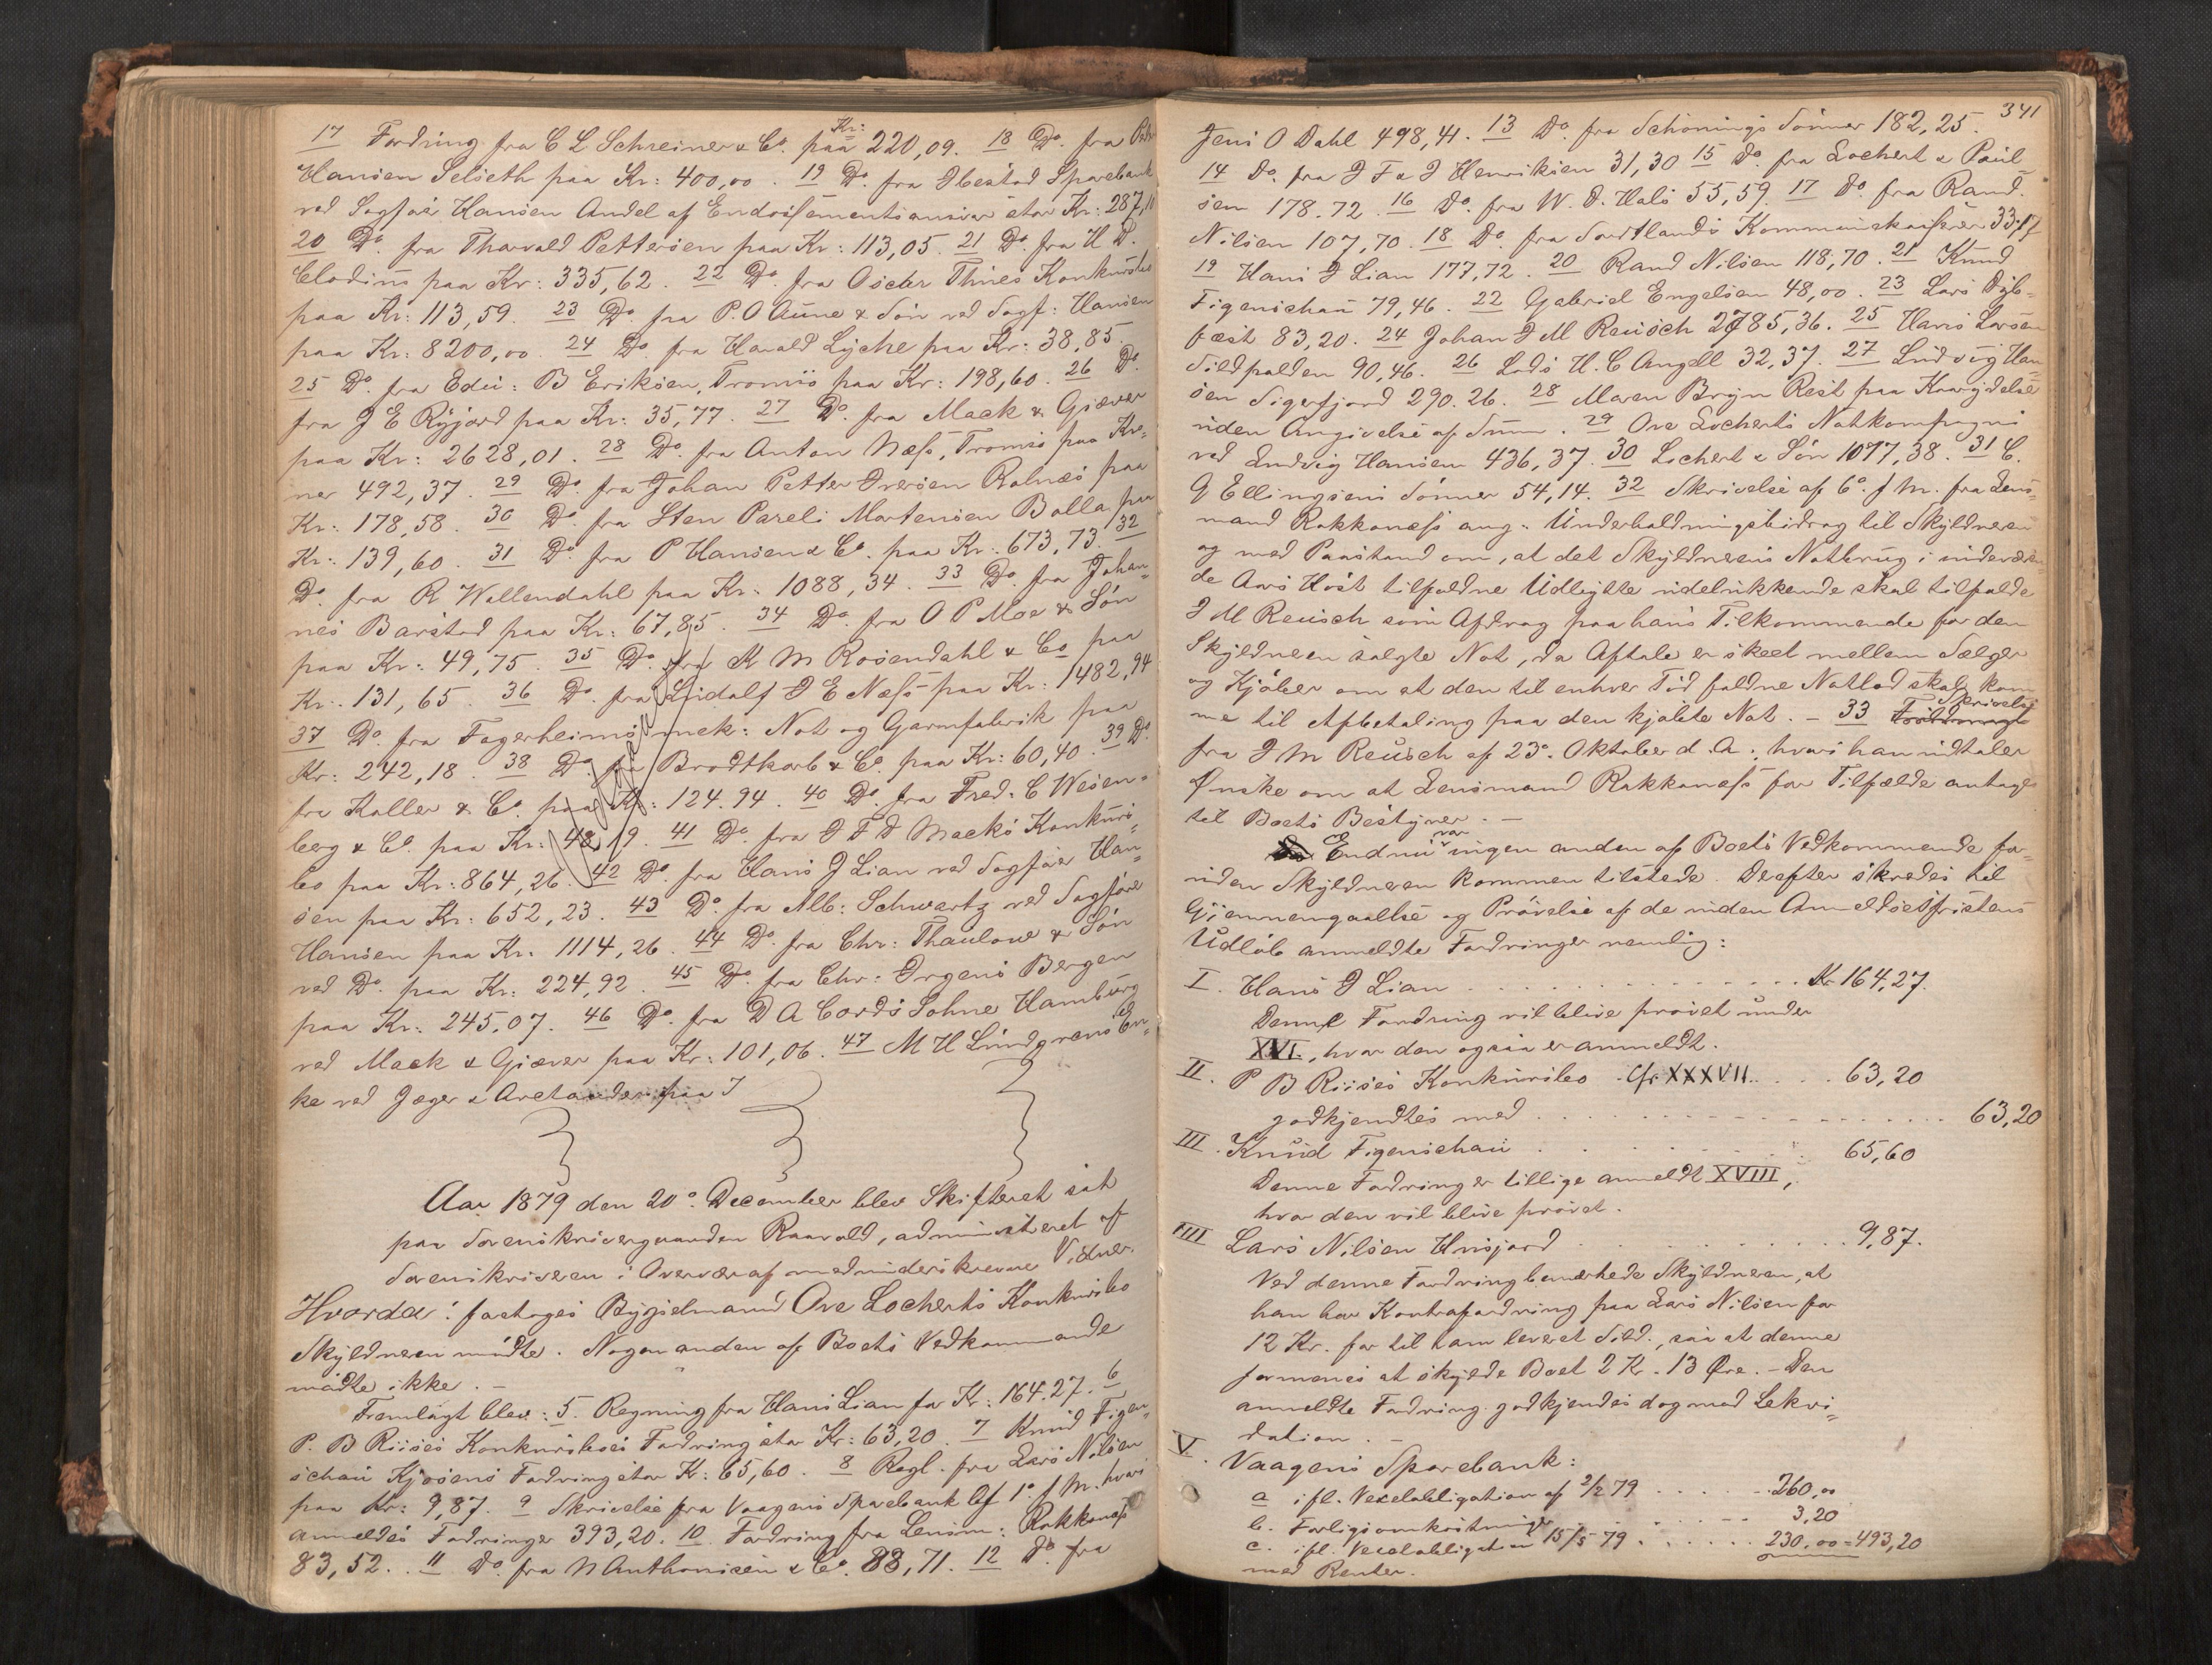 17 Fordring fra C L Schreiner & Co. paa Kr: 220,09. 18 Do. fra
Hansen Selseth paa Kr: 400,00. 19 Do. fra Ibestad Sparebank
ved Sagfører Hansen Andel af Endossementsansvar stor Kr: 287,10
20 Do. fra Thorvald Pettersen paa Kr: 113,05. 21 Do. fra H D.
Clodius paa Kr: 335,62. 22 Do. fra Oscar Thiies Konkursbo
paa Kr: 113,59. 23 Do. fra P. O Aune & Søn ved Sagf: Hansen
paa Kr: 8200,00. 24 Do. fra Harald Lycke paa Kr: 38,85.
25 Do. fra Edv: B Eriksen, Tromsø paa Kr: 198,60. 26 Do.
fra J E Ryjord paa Kr: 35,77. 27 Do. fra Mack & Giæver
paa Kr: 2628,01. 28 Do. fra Anton Næss, Tromsø paa Kro-
ner 492,37. 29 Do. fra Johan Petter Iversen Rolnæs paa
Kr: 178,58. 30 Do. fra Sten Pareli Mortensen Bolla paa
Kr: 139,60. 31 Do. fra P Hansen & Co. paa Kr: 673,73. 32
Do. fra R Wallendahl paa Kr: 1088,34. 33 Do. fra Johan-
nes Barstad paa Kr: 67,85. 34 Do. fra O P Moe & Søn
paa Kr: 49,75. 35 Do. fra K M Rosendahl & Co paa
Kr: 131,65. 36 Do. fra Lidalf J E Næss paa Kr: 1482,94
37 Do. fra Fagerheims mek: Not og Garnfabrik paa
Kr: 242,18. 38 Do. fra Brodtkorb & Co. paa Kr: 60,40. 39 Do.
fra Koller & Co. paa Kr: 124.94. 40 Do. fra Fred: C Wesen-
berg & Co. paa Kr: 48,19. 41 Do. fra J F D Macks Konkurs-
bo paa Kr: 864,26. 42 Do. fra Hans J Lian ved Sagfører Han-
sen paa Kr: 652,23. 43 Do. fra Alb: Schwartz ved Sagfører
Hansen paa Kr: 1114,26. 44 Do. fra Chr: Thaulow & Søn
ved Do. paa Kr: 224,92. 45 Do. fra Chr: Irgens Bergen
paa Kr: 245,07. 46 Do. fra D A Cords Sohne Hamburg
ved Mack & Giæver paa Kr: 101,06. 47 M H Lundgrens En-
ke ved Jæger & Arctander paa
Aar 1879 den 20de December blev Skifteret sat
paa Sorenskrivergaarden Raavold, administreret af
Sorenskriveren i Overvær af medunderskrevne Vidner.
Hvorda: foretoges Bygselmand Ove Locherts Konkursbo
Skyldneren mødte. Nogen anden af Boets Vedkommende
mødte ikke. –
Fremlagt blev: 5. Regning fra Hans Lian for Kr: 164.27. 6
P. B Riises Konkursbos Fordring stor Kr: 63,20. 7 Knud Figen-
schau Kjøsens Fordring stor Kr: 65,60. 8 Regl. fra Lars Nilsen
paa Kr: 9,87. 9 Skrivelse fra Vaagens Sparebank af 1ste f M. hvori
anmeldes Fordringer 393,20. 10 Fordring fra Lensm: Rokkonæss
83,52. 11 Do. fra N Anthonisen & Co. 88,71. 12 Do. fra
341
Jens O Dahl 498,41. 13 Do. fra Schønings Sønner 182,25.
14 Do. fra J F & J Henriksen 31,30 15 Do. fra Lochert & Paul-
sen 178.72. 16 Do. fra W. D. Hals 55,59. 17 Do. fra Rand.
Nilsen 107,70. 18 Do. fra Sortlands Kommunekasserer 33,17
19 Hans J Lian 177,72. 20 Rand Nilsen 118,70. 21 Knud
Figenschau 79,46. 22 Gabriel Engelsen 48,00. 23 Lars Dyb-
fæst 83,20. 24 Johan J M Reusch 2785,36. 25 Hans Larsen
Sildpolden 90,46. 26 Lods H. C Angell 32,37. 27 Ludvig Han-
sen Sigerfjord 290.26. 28 Maren Bryn Rest paa Kavydelse
uden Angivelse af Sum. 29 Ove Locherts Notkompagni
ved Ludvig Hansen 436,37. 30 Lochert & Søn 1077,38. 31 C.
G Ellingsens Sønner 54,14. 32 Skrivelse af 6te f M. fra Lens-
mand Rokkonæss ang: Underholdningsbidrag til Skyldneren
og med Paastand om, at det Skyldnerens Notbrug i indeværen-
de Aars Høst tilfaldne Udbytte udelukkende skal tilfalde
J M Reusch som Afdrag paa hans Tilkommende for den
Skyldneren solgte Not, da Aftale er skeet mellem Sælger
og Kjøber om at den til enhver Tid faldne Notlod skal kom-
me til Afbetaling paa den kjøbte Not. – 33 Skrivelse
fra J M Reusch af 23de Oktober d. A., hvori han udtaler
Ønske om at Lensmand Rokkonæss for Tilfælde antages
til Boets Bestyrer. –
Endnu var ingen anden af Boets Vedkommende for-
uden Skyldneren kommen tilstede. Derefter skredes til
Gjennemgaaelse og Prøvelse af de inden Anmeldelsesfristens
Udløb anmeldte Fordringer nemlig:
I. Hans J Lian . . . . . . Kr 164,27.
Denne Fordring vil blive prøvet under
XVI., hvor den ogsaa er anmeldt.
II. P B Riises Konkursbo. Cfr XXXVII . . . 63,20
godkjendtes med . . . . . . 63,20
III. Knud Figenschau . . . . . 65,60
Denne Fordring er tillige anmeldt XVIII,
hvor den vil blive prøvet.
IIII Lars Nilsen Husjord . . . . . 9,87.
Ved denne Fordring bemærkede Skyldneren, at
han har Kontrafordring paa Lars Nilsen for
12 Kr. for til ham leveret Sild., saa at denne
formenes at skylde Boet 2 Kr. 13 Øre. – Den
anmeldte Fordring godkjendes dog med Lekvi-
dation. –
V. Vaagens Sparebank:
a ifl. Vexelobligation af 2/2 79 . . . . 260,00
b. Forligsomkostninger . . . . 3,20
c. ifl. Vexelobligation 15/5 79 . . . . 230,00 = 493,20
med Renter.